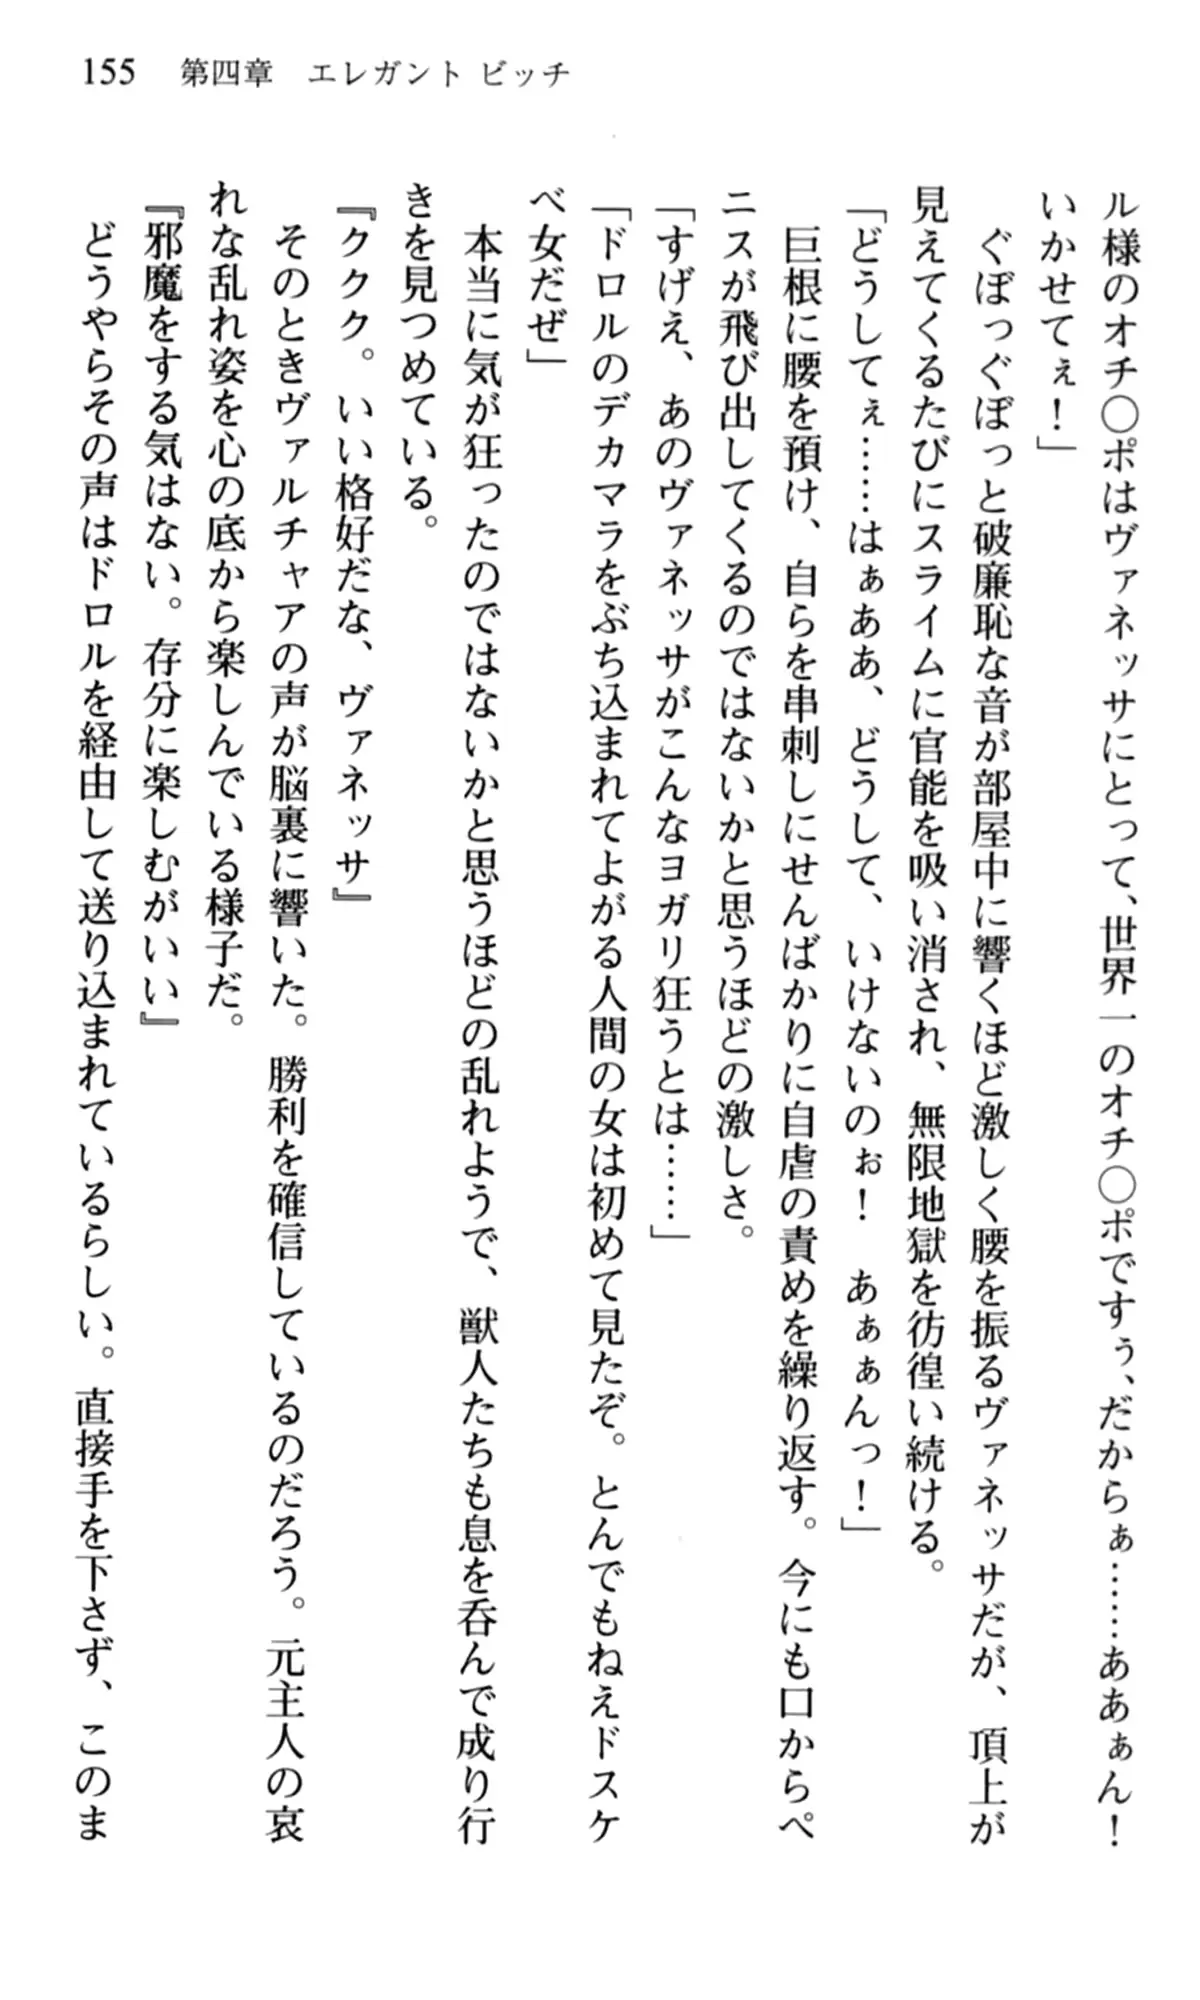 155　第四章　エレガント ビッチ
ル様のオチ〇ポはヴァネッサにとって、世界一のオチ〇ポですぅ、だからぁ……ああぁん！
いかせてぇ！」
　ぐぽっぐぽっと破廉恥な音が部屋中に響くほど激しく腰を振るヴァネッサだが、頂上が
見えてくるたびにスライムに官能を吸い消され、無限地獄を彷徨い続ける。
「どうしてぇ……はぁああ、どうして、いけないのぉ！　あぁぁんっ！」
　巨根に腰を預け、自らを串刺しにせんばかりに自虐の責めを繰り返す。今にも口からペ
ニスが飛び出してくるのではないかと思うほどの激しさ。
「すげえ、あのヴァネッサがこんなヨガリ狂うとは……」
「ドロルのデカマラをぶち込まれてよがる人間の女は初めて見たぞ。とんでもねえドスケ
ベ女だぜ」
　本当に気が狂ったのではないかと思うほどの乱れようで、獣人たちも息を呑んで成り行
きを見つめている。
『ククク。いい格好だな、ヴァネッサ』
　そのときヴァルチャアの声が脳裏に響いた。勝利を確信しているのだろう。元主人の哀
れな乱れ姿を心の底から楽しんでいる様子だ。
『邪魔をする気はない。存分に楽しむがいい』
　どうやらその声はドロルを経由して送り込まれているらしい。直接手を下さず、このま